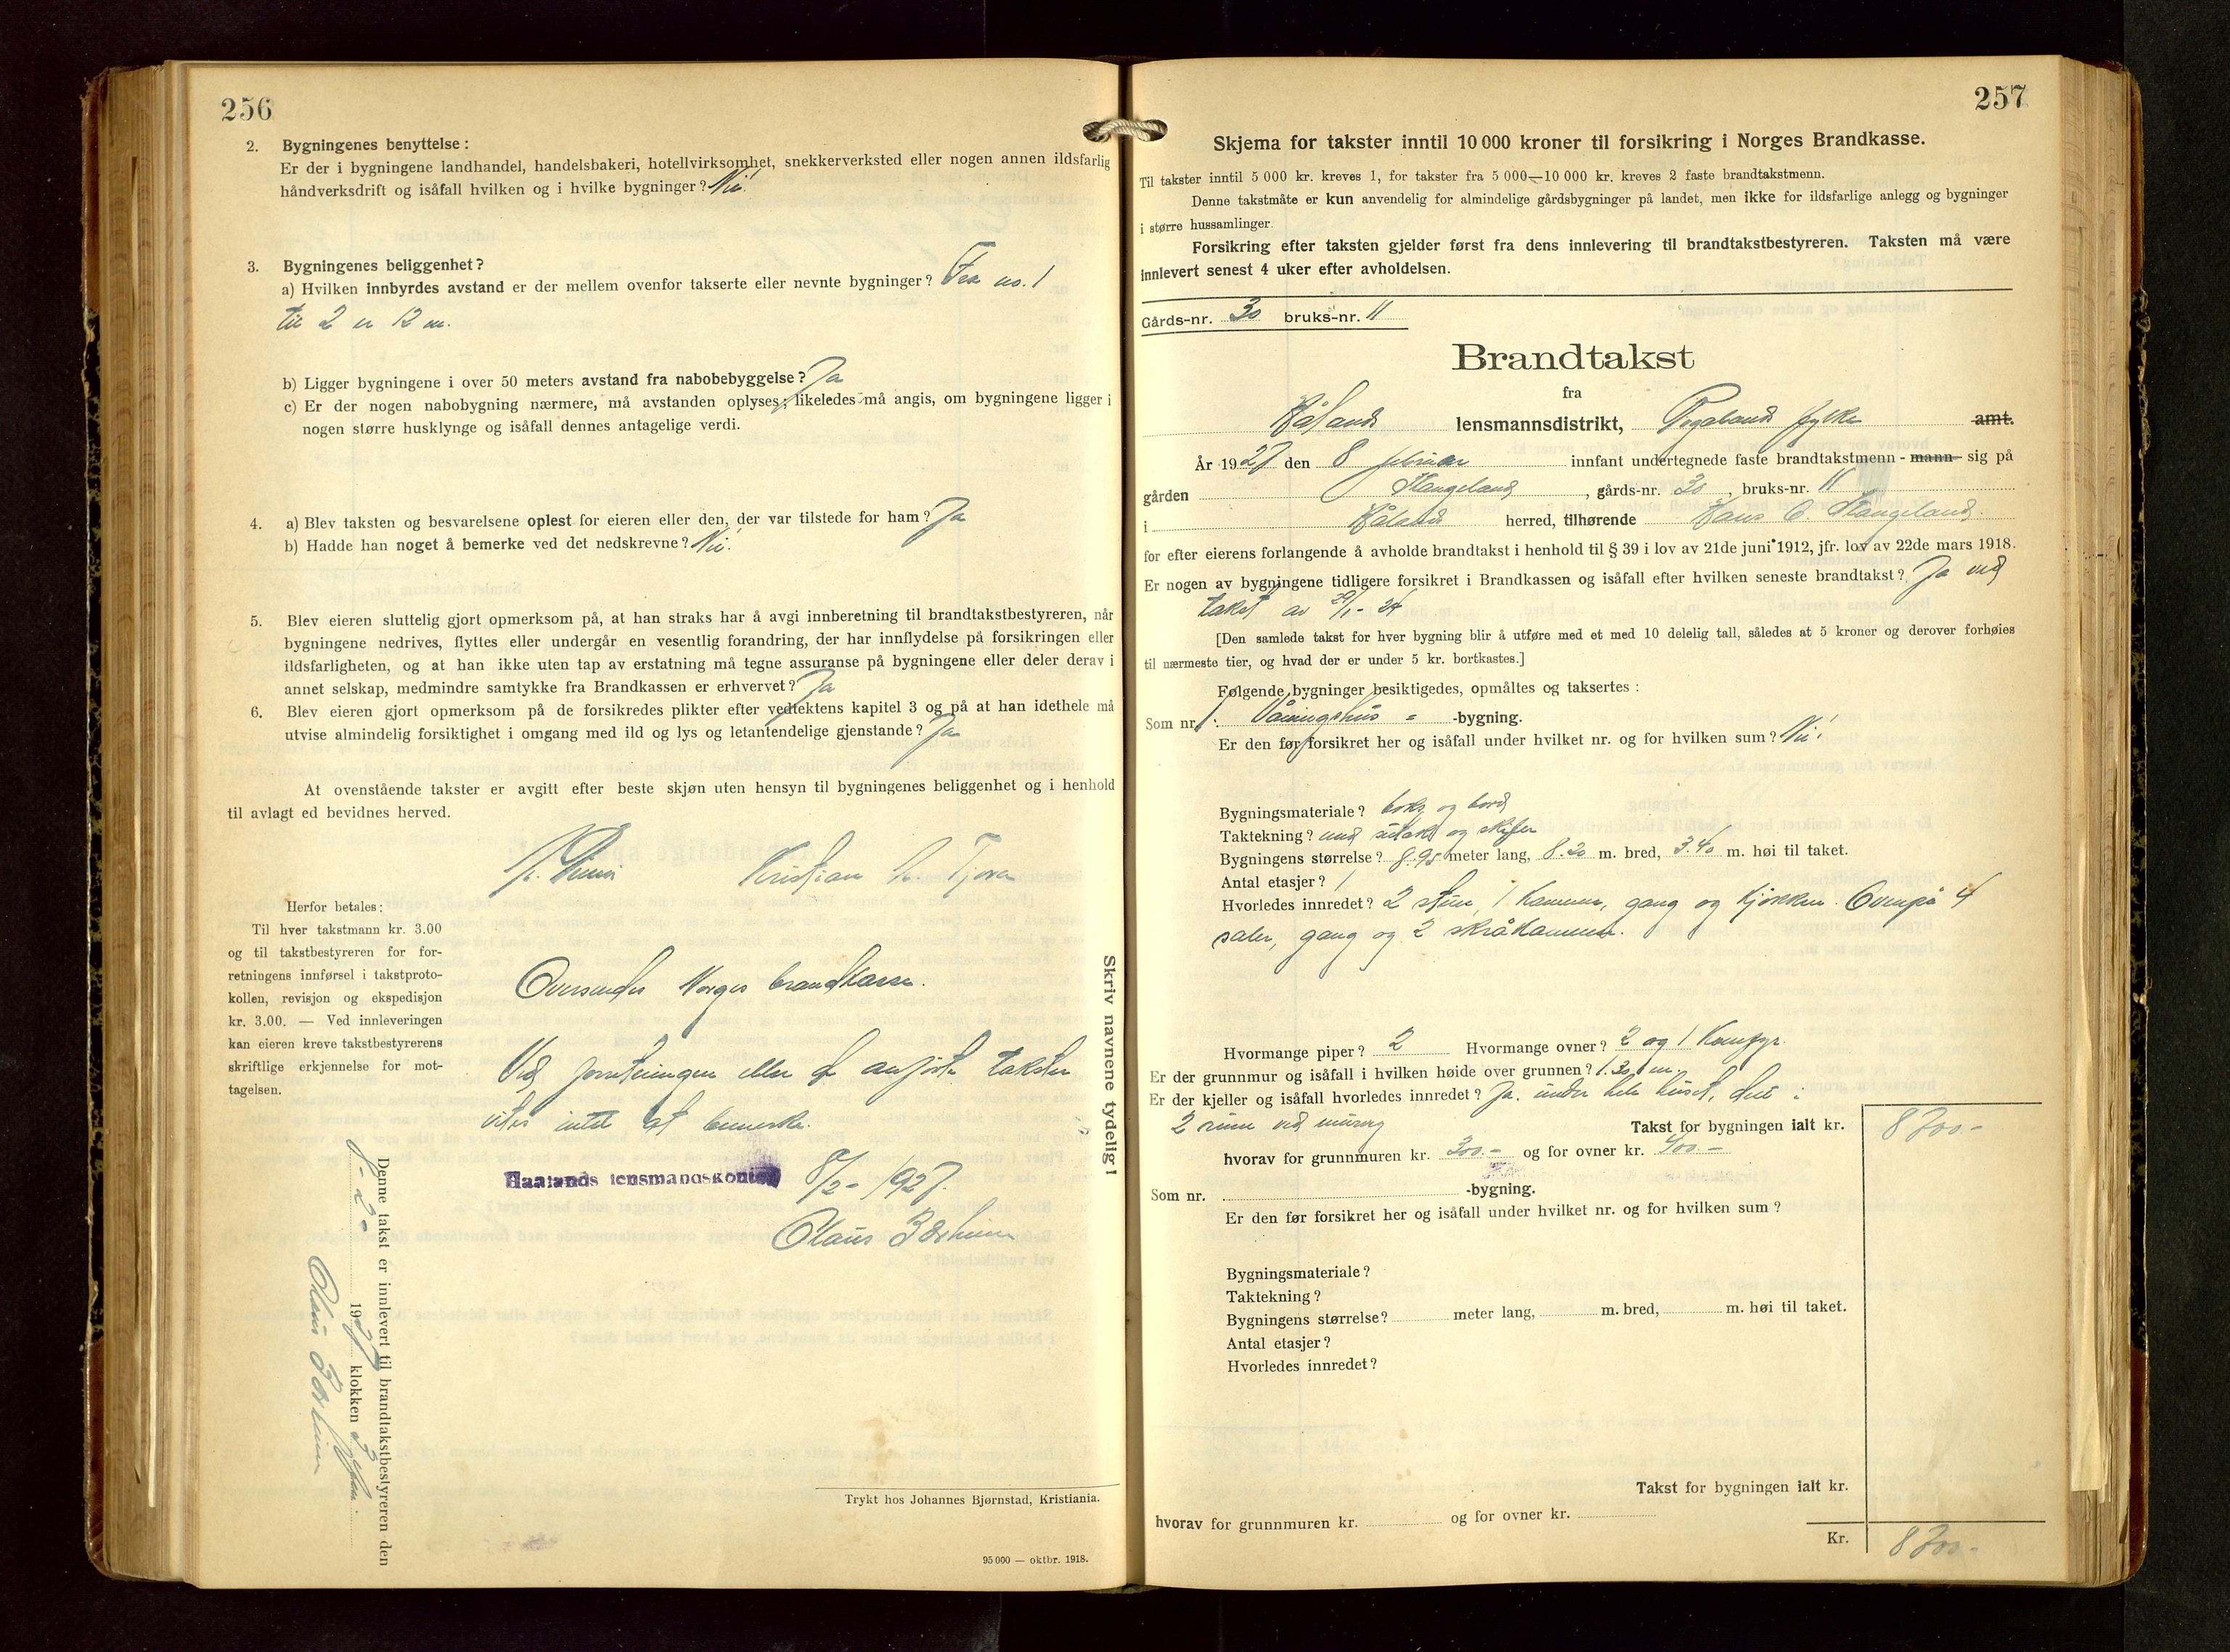 256
2. Bygningenes benyttelse:
Er der i bygningene landhandel, handelsbakeri, hotellvirksomhet, snekkerverksted eller nogen annen ildsfarlig
håndverksdrift og isåfall hvilken og i hvilke bygninger? Nei.
3. Bygningenes beliggenhet?
a) Hvilken innbyrdes avstand er der mellem ovenfor takserte eller nevnte bygninger? Fra no. 1
til 2 er 12 m.
b) Ligger bygningene i over 50 meters avstand fra nabobebyggelse? Ja
c) Er der nogen nabobygning nærmere, må avstanden oplyses; likeledes må angis, om bygningene ligger i
nogen større husklynge og isåfall dennes antagelige verdi.
4. a) Blev taksten og besvarelsene oplest for eieren eller den, der var tilstede for ham? Ja
b) Hadde han noget å bemerke ved det nedskrevne? Nei.
5. Blev eieren sluttelig gjort opmerksom på, at han straks har å avgi innberetning til brandtakstbestyreren, når
bygningene nedrives, flyttes eller undergår en vesentlig forandring, der har innflydelse på forsikringen eller
ildsfarligheten, og at han ikke uten tap av erstatning må tegne assuranse på bygningene eller deler derav i
annet selskap, medmindre samtykke fra Brandkassen er erhvervet? Ja
6. Blev eieren gjort opmerksom på de forsikredes plikter efter vedtektens kapitel 3 og på at han idethele må
utvise almindelig forsiktighet i omgang med ild og lys og letantendelige gjenstande? Ja
At ovenstående takster er avgitt efter beste skjøn uten hensyn til bygningenes beliggenhet og i henhold
til avlagt ed bevidnes herved.
Kristian Tjora
Herfor betales:
Til hver takstmann kr. 3.00
og til takstbestyreren for for-
retningens innførsel i takstproto-
kollen, revisjon og ekspedisjon
kr. 3.00. — Ved innleveringen
kan eieren kreve takstbestyrerens
skriftlige erkjennelse for mot-
tagelsen.
Oversendes Norges brandkasse.
Ved forretningen eller de anførte takster
vites intet at bemerke.
Haalands lensmandskontor 8/2- 1927.
Olaus Bærheim
Skriv navnene tydelig!
Denne takst er innlevert til brandtakstbestyreren den
8-2- 1927 klokken 3
Olaus Bærheim
Trykt hos Johannes Bjørnstad, Kristiania.
95 000 — oktbr. 1918.
257
Skjema for takster inntil 10 000 kroner til forsikring i Norges Brandkasse.
Til takster inntil 5 000 kr. kreves 1, for takster fra 5 000—10 000 kr. kreves 2 faste brandtakstmenn.
Denne takstmåte er kun anvendelig for almindelige gårdsbygninger på landet, men ikke for ildsfarlige anlegg og bygninger
i større hussamlinger.
Forsikring efter taksten gjelder først fra dens innlevering til brandtakstbestyreren. Taksten må være
innlevert senest 4 uker efter avholdelsen.
Gårds-nr. 30 bruks-nr. 11
Brandtakst
fra
Håland lensmannsdistrikt, Rogaland fylke amt.
År 1927 den 8 februar innfant undertegnede faste brandtakstmenn - mann - sig på
gården Stangeland, gårds-nr. 30, bruks-nr. 11
i Håland herred, tilhørende Hans O. Stangeland.
for efter eierens forlangende å avholde brandtakst i henhold til § 39 i lov av 21de juni 1912, jfr. lov av 22de mars 1918.
Er nogen av bygningene tidligere forsikret i Brandkassen og isåfall efter hvilken seneste brandtakst? Ja ved
takst av 29/1- 24
[Den samlede takst for hver bygning blir å utføre med et med 10 delelig tall, således at 5 kroner og derover forhøies
til nærmeste tier, og hvad der er under 5 kr. bortkastes.]
Følgende bygninger besiktigedes, opmåltes og taksertes:
Som nr. 1. Våningshus - -bygning.
Er den før forsikret her og isåfall under hvilket nr. og for hvilken sum? Nei!
Bygningsmateriale? og bord
Taktekning? med sutak og skifer
Bygningens størrelse? 8.95 meter lang, 8.20 m. bred, 3.40 m. høi til taket.
Antal etasjer? 1
Hvorledes innredet? 2 stuer, 1 kammer, gang og kjøkken. Ovenpå 4
saler, gang og 2 skråkammer.
Hvormange piper? 2 Hvormange ovner? 2 og 1 Komfyr.
Er der grunnmur og isåfall i hvilken høide over grunnen? 1.30 m.
Er der kjeller og isåfall hvorledes innredet? Ja. under hele huset, delt i
2 rum ved murveg
Takst for bygningen ialt kr. 8700.-
hvorav for grunnmuren kr. 300.- og for ovner kr. 400.-
Som nr. -bygning.
Er den før forsikret her og isåfall under hvilket nr. og for hvilken sum?
Bygningsmateriale?
Taktekning?
Bygningens størrelse? meter lang, m. bred, m. høi til taket.
Antal etasjer?
Hvorledes innredet?
Takst for bygningen ialt kr.
hvorav for grunnmuren kr. og for ovner kr.
Kr. 8700.-